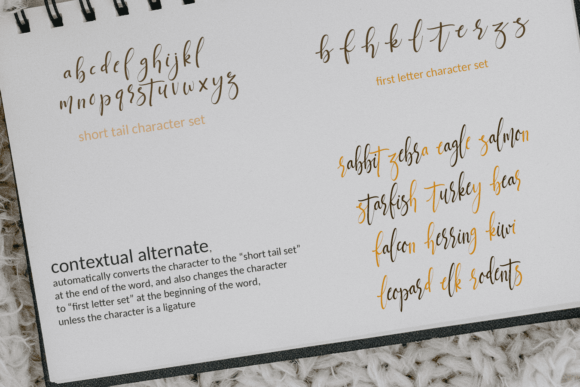 abcdefghijkl
mnopqrstuvwxyz
short tail character set
b f h k l t e r z s
first letter character set
rabbit zebra eagle salmon
starfish turkey bear
falcon herring kiwi
leopard elk rodents
contextual alternate.
automatically converts the character to the "short tail set"
at the end of the word, and also changes the character
to "first letter set" at the beginning of the word,
unless the character is a ligature